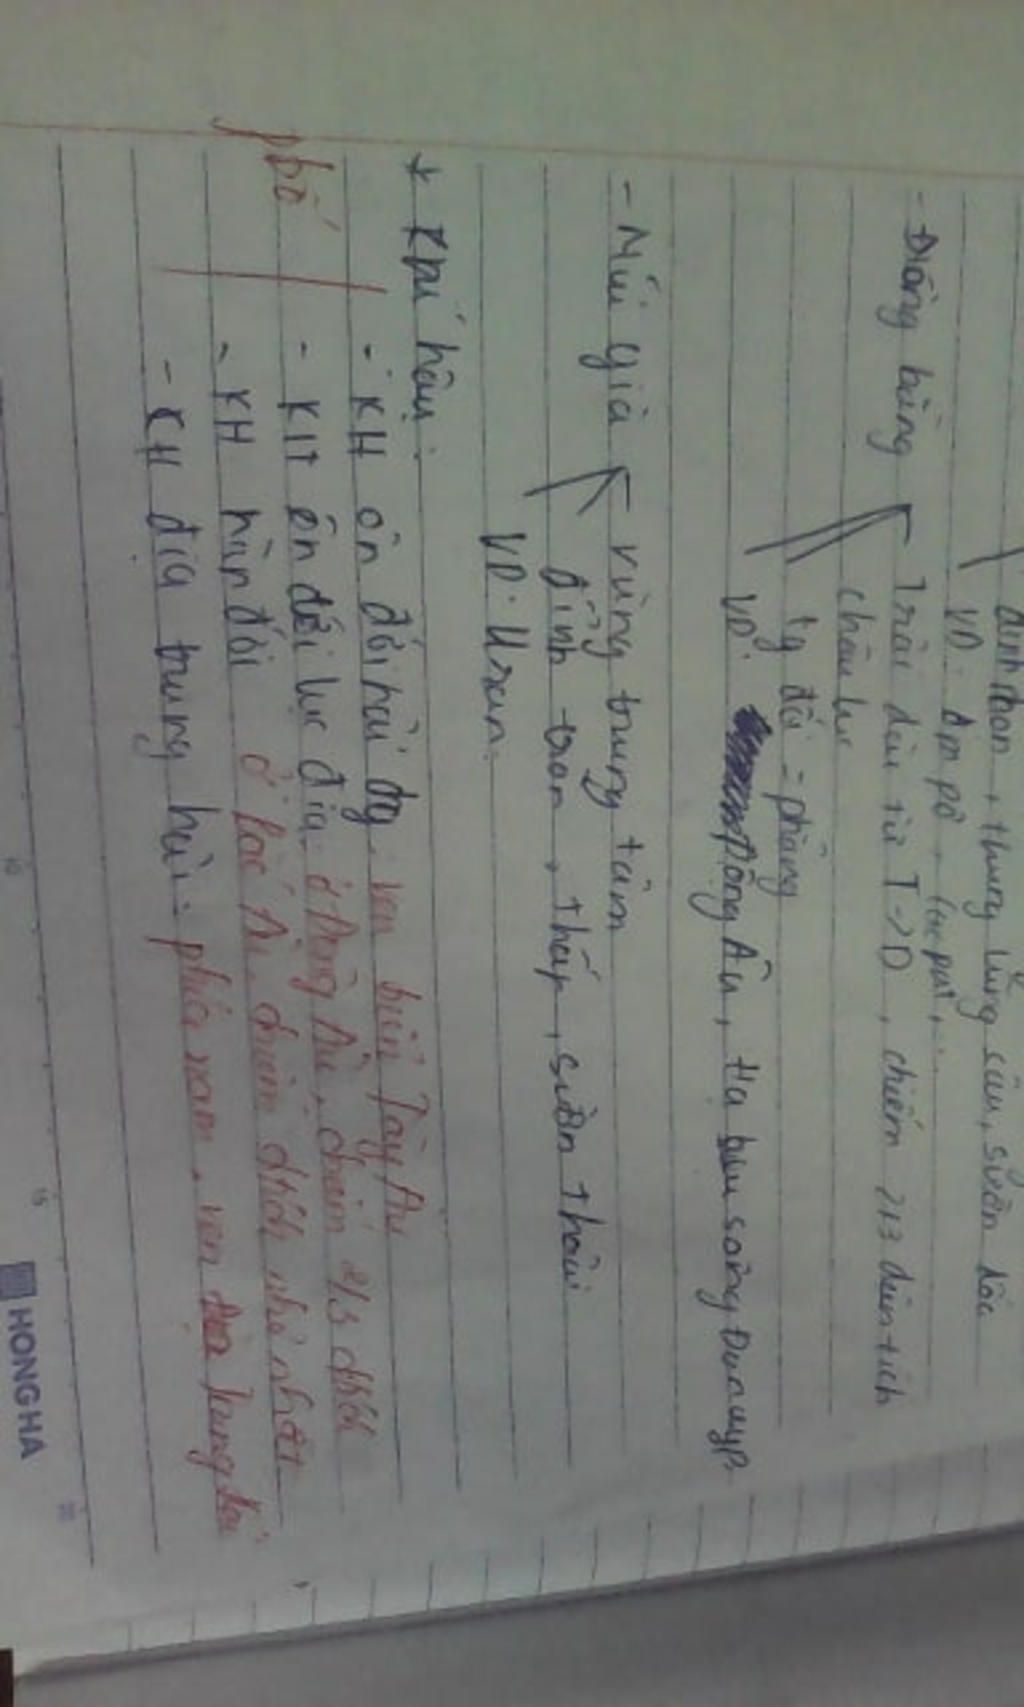 đỉnh nhọn, thung lũng sâu, sườn dốc
VD: Anpơ, Cacpat,...
- Đồng bằng
Trải dài từ T->D, chiếm 2/3 diện tích
châu lục
tg đối = phẳng
VD: Đông Âu, Hạ lưu sông Đunuyp.
- Núi già
vùng trung tâm
đỉnh tròn, thấp, sườn thoải
VD: Uran.
* Khí hậu:
- KH ôn đới hải dg. ven biển Tây Âu
phố - KH ôn đới lục địa. ở Đông Âu, chiếm 2/3 dtích
- KH hàn đới ở Bắc Âu, chiếm dtích nhỏ nhất
- KH địa trung hải: phía nam, ven Địa Trung Hải
HONG HA